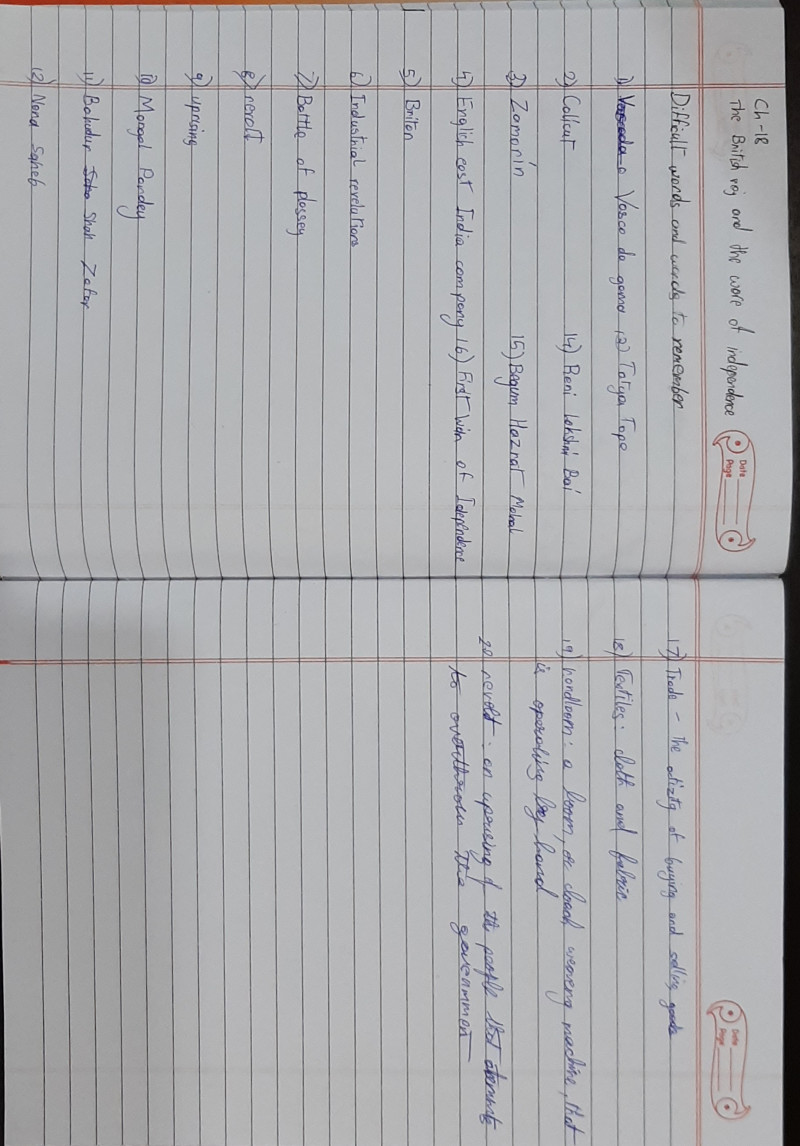 Date
Page
Ch-18
The British raj and the wore of independence
Difficult words and words to remember
1) Vasco da gama 13) Tatya Tope
2) Calicut 14) Rani lakshmi Bai
3) Zamorin 15) Begum Hazrat Mahal
4) English east India company 16) First Wan of Idependence
5) Briton
6) Industrial revolutions
7) Battle of plassey
8) revolt
9) uprising
10) Mangal Pandey
11) Bahadur Shah Zafar
12) Nana Saheb
Date
Page
17) Trade - The of buying and selling goods
18) Textiles: cloth and fabric
19) handloom: a loom, or weaving machine, that
is operating by hand
20 revolt: an uprising of the people that
to overthrow the government